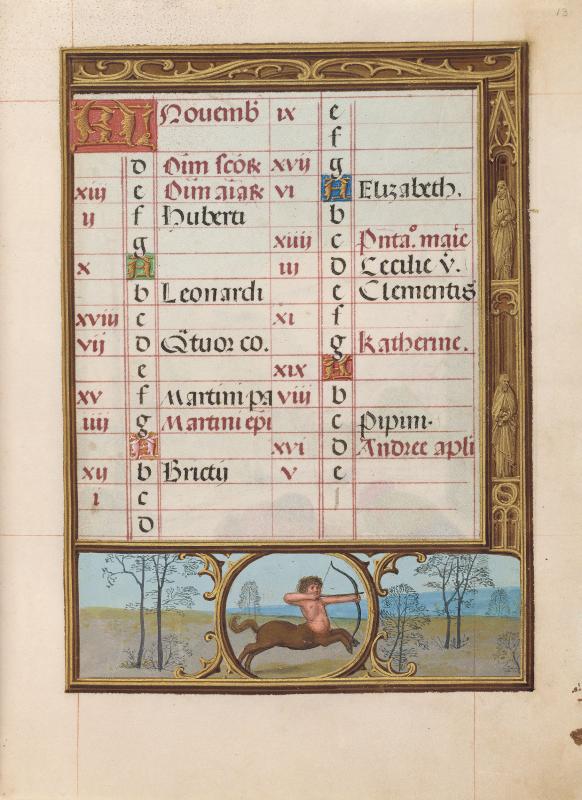 13
KL Nouemb̄
d Oīm sctõꝝ
xiij e Oīm aīaꝝ
ij f Huberti
g
x A
b Leonardi
xviij c
vij d Q̄tuor co.
e
xv f Martini pa
iiij g Martini epi
A
xij b Brictij
i c
d
ix e
f
xvij g
vi A Elizabeth.
b
xiiij c Pn̄ta.° marie
iij d Cecilie v̄.
e Clementis
xi f
g Katherine.
xix A
viij b
c Pipini.
xvi d Andree apli
v e